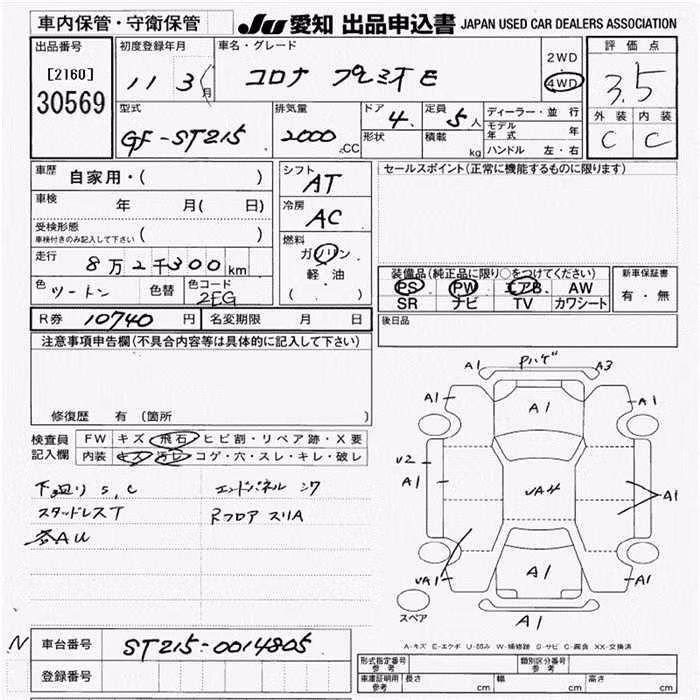 車内保管・守衛保管
JU 愛知 出品申込書 JAPAN USED CAR DEALERS ASSOCIATION
出品番号
[2160]
30569
初度登録年月
11 3 月
車名・グレード
コロナ プレミオ E
2WD
4WD
評価点
3.5
外装 内装
C C
型式
GF-ST215
排気量
2000 .CC
ドア 4
形状
定員 5 人
積載 kg
ディーラー・並行
モデル年式 年
ハンドル 左・右
車歴 自家用・( )
車検 年 月( 日)
受検形態
車検付きのみ記入して下さい ( )
走行 8万2千300km
色 ツートン 色替 色コード 2EG
シフト
AT
冷房
AC
燃料
ガソリン
軽・油
( )
セールスポイント(正常に機能するものに限ります)
装備品(純正品に限り○をつけてください)
PS PW エアB AW
SR ナビ TV カワシート
新車保証書
有・無
後日品
R券 10740 円 名変期限 月 日
注意事項申告欄(不具合内容等は具体的に記入して下さい)
修復歴 有(箇所
検査員記入欄
FW キズ・飛石・ヒビ割・リペア跡・X要
内装 キズ・汚レ・コゲ・穴・スレ・キレ・破レ
下廻り S,C エンドパネル
スタッドレスT Rフロア スリA
各AU
A1 Pハゲ A3
A1 A1 A1
U2
A1 UA4 A1
UA1 A1 A1
スペア A1
A-キズ E-エクボ U-凹み W-補修跡 S-サビ C-腐食 XX-交換済
N 車台番号 ST215-0014805
登録番号
形式指定番号 参考
類別区分番号 参考
車庫証明用 参考 長さ cm 幅 cm 高さ cm